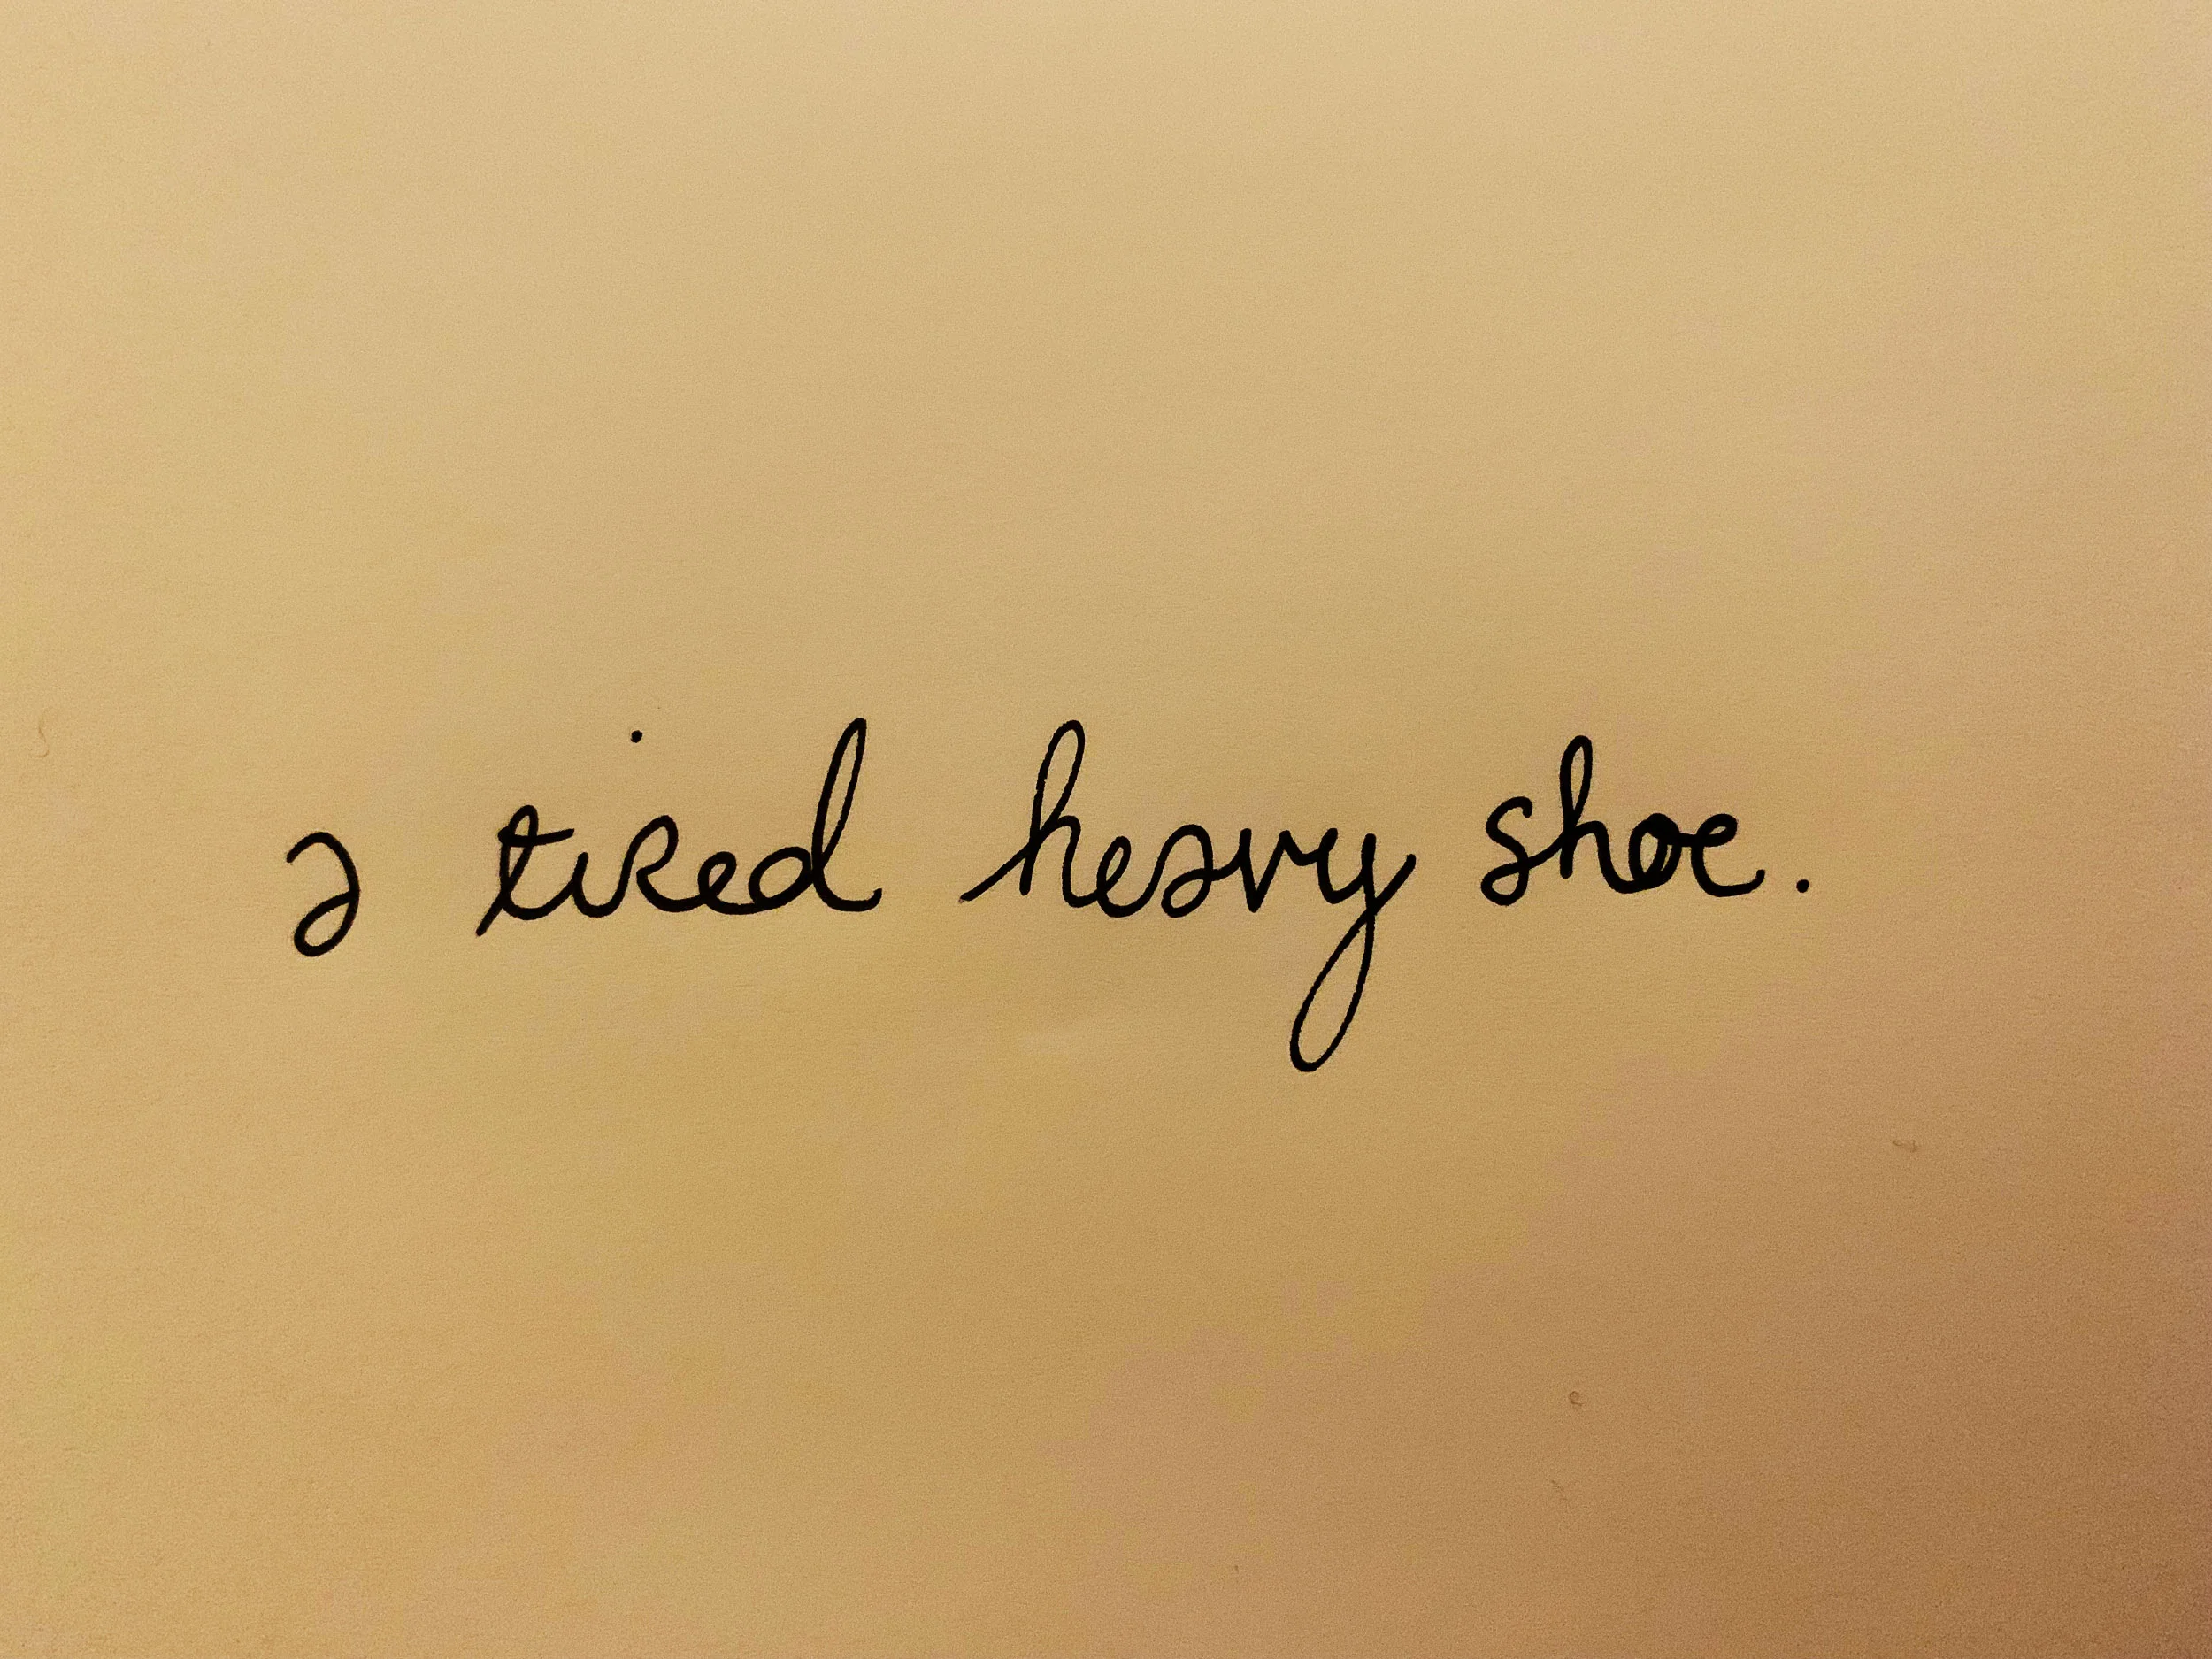 a tired heavy shoe.